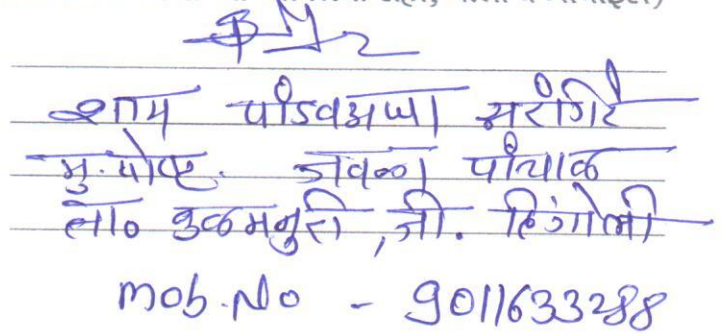 शाम पांडवअप्पा सरोगिरे
मु. पोस्ट. जवळा पांचाळ
ता० कळमनुरी, जी. हिंगोली
mob.No - 9011633288